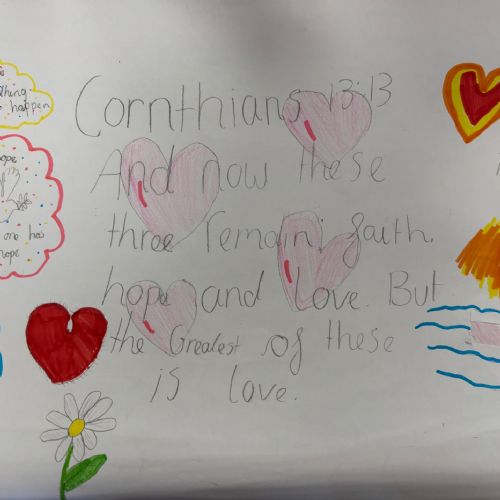 Cornthians 13:13
And now these
three remain: faith.
hope and Love. But
the Greatest of these
is love.
happen
hope
one has
hope